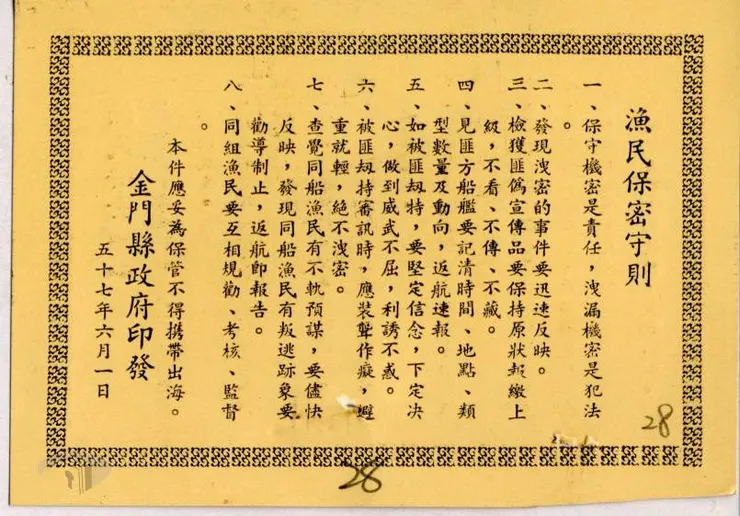 漁民保密守則
一、保守機密是責任，洩漏機密是犯法
。
二、發現洩密的事件要迅速反映。
三、檢獲匪偽宣傳品要保持原狀報繳上
級，不看、不傳、不藏。
四、見匪方船艦要記清時間、地點、類
型數量及動向，返航速報。
五、如被匪刼持，要堅定信念，下定決
心，做到威武不屈，利誘不惑。
六、被匪刼持審訊時，應裝聾作癡，避
重就輕，絕不洩密。
七、查覺同船漁民有不軌預謀，要儘快
反映，發現同船漁民有叛逃跡象要
勸導制止，返航即報告。
八、同組漁民要互相規勸、考核、監督
。
本件應妥為保管不得攜帶出海。
金門縣政府印發
五十七年六月一日
28
28